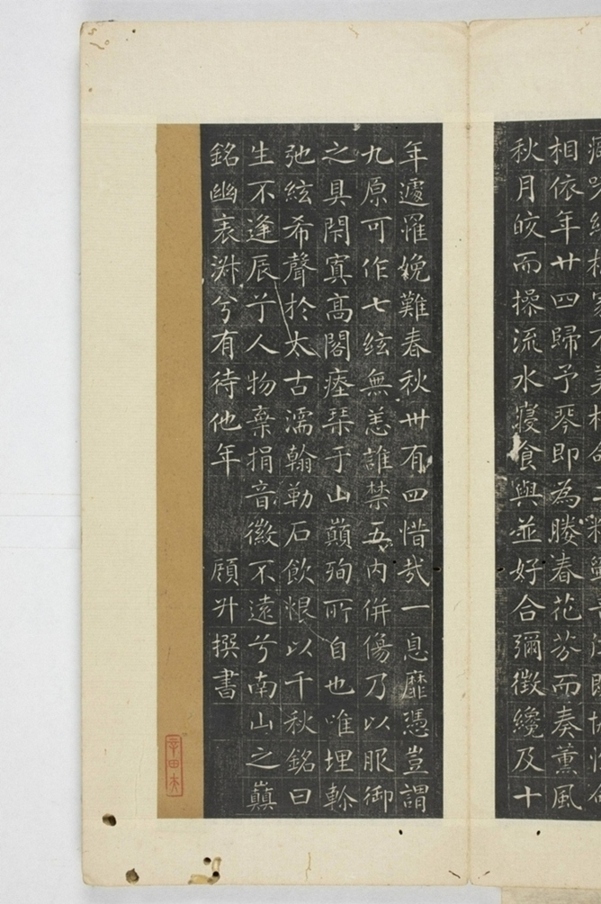 相依年廿四歸予琴即為媵春花芬而奏薰風
秋月皎而操流水寢食與並好合彌徵纔及十
年遽罹娩難春秋卅有四惜哉一息靡憑豈謂
九原可作七絃無恙誰禁五內併傷乃以服御
之具閑寘高閣瘞琹于山巔殉所自也唯埋軫
弛絃希聲於太古濡翰勒石飲恨以千秋銘曰
生不逢辰兮人物棄捐音徽不遠兮南山之巔
銘幽表淑兮有待他年 顧升撰書